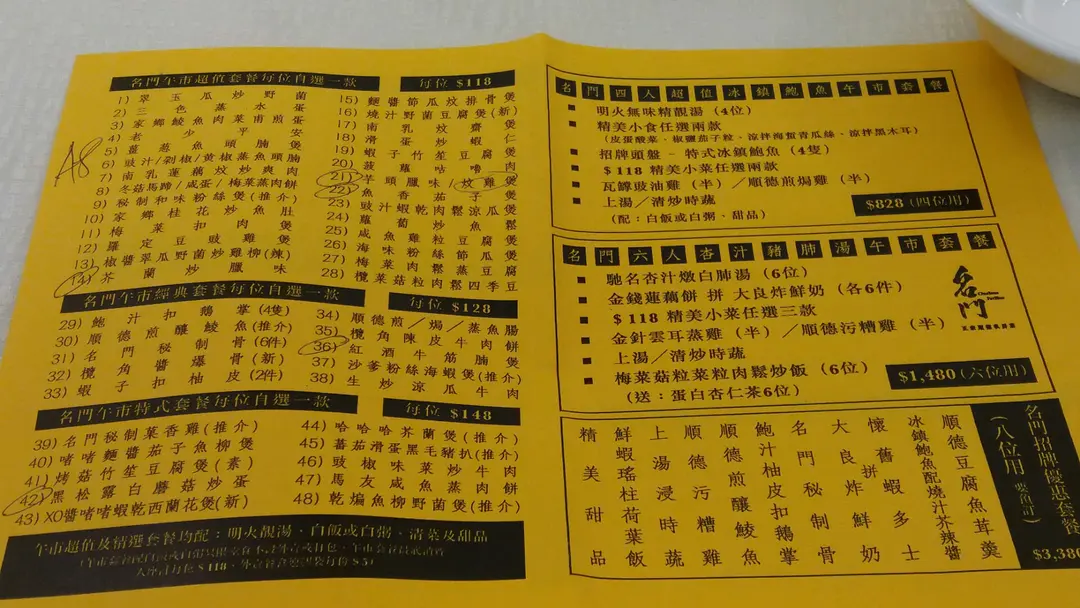 名門午市超值套餐每位自選一款 每位 $118
1) 翠玉瓜炒野菌
2) 三色蒸水蛋
3) 家鄉鯪魚肉菜甫煎蛋
4) 老少平安
5) 蕃茄魚頭腩煲
6) 豉汁/剁椒/黄椒蒸魚頭腩
7) 南乳蓮藕炆炒爽肉
8) 冬菇馬蹄/咸蛋/梅菜蒸肉餅
9) 秘制和味粉絲煲(推介)
10) 家鄉桂花炒魚肚
11) 梅菜扣肉煲
12) 羅定豆豉雞煲
13) 椒醬翠瓜野菌炒雞柳(辣)
14) 芥蘭炒臘味
15) 麵醬節瓜炆排骨煲
16) 燒汁野菌豆腐煲(新)
17) 南乳炆齋煲
18) 滑蛋炒蝦仁
19) 蝦子竹笙豆腐煲
20) 菠蘿咕嚕肉
21) 芋頭臘味/炆雞煲
22) 魚香茄子煲
23) 豉汁蝦乾肉鬆涼瓜煲
24) 蘿蔔炒魚鬆
25) 咸魚雞粒豆腐煲
26) 海味粉絲節瓜煲
27) 梅菜肉鬆蒸豆腐
28) 欖菜菇粒肉鬆四季豆
A8
名門午市經典套餐每位自選一款 每位 $128
29) 鮑汁扣鵝掌(4隻)
30) 順德煎釀鯪魚(推介)
31) 名門秘制骨(6件)
32) 欖角醬爆骨(新)
33) 蝦子扣柚皮(2件)
34) 順德煎/焗/蒸魚腸
35) 欖角陳皮牛肉餅
36) 紅酒牛筋腩煲
37) 沙爹粉絲海蝦煲(推介)
38) 生炒涼瓜牛肉
名門午市特式套餐每位自選一款 每位 $148
39) 名門秘制菓香雞(推介)
40) 啫啫麵醬茄子魚柳煲
41) 烤菇竹笙豆腐煲(素)
42) 黑松露白蘑菇炒蛋
43) XO醬啫啫蝦乾西蘭花煲(新)
44) 哈哈哈芥蘭煲(推介)
45) 蕃茄滑蛋黑毛豬扒(推介)
46) 豉椒味菜炒牛肉
47) 馬友咸魚蒸肉餅
48) 乾煸魚柳野菌煲(新)
午市超值及精選套餐均配：明火靚湯、白飯或白粥、清菜及甜品
名門四人超值冰鎮鮑魚午市套餐
■ 明火無味精靚湯 (4位)
■ 精美小食任選兩款
(皮蛋酸菜、椒鹽茄子粒、涼拌海蜇青瓜絲、涼拌黑木耳)
■ 招牌頭盤 - 特式冰鎮鮑魚 (4隻)
■ $118 精美小菜任選兩款
■ 瓦罉豉油雞 (半) ／順德煎焗雞 (半)
■ 上湯／清炒時蔬
(配：白飯或白粥、甜品)
$828 (四位用)
名門六人杏汁豬肺湯午市套餐
■ 馳名杏汁燉白肺湯 (6位)
■ 金錢蓮藕餅 拼 大良炸鮮奶 (各6件)
■ $118 精美小菜任選三款
■ 金針雲耳蒸雞 (半) ／順德污糟雞 (半)
■ 上湯／清炒時蔬
■ 梅菜菇粒菜粒肉鬆炒飯 (6位)
(送：蛋白杏仁茶6位)
$1,480 (六位用)
名門
名門招牌優惠套餐
(八位用 要預訂)
$3,380
順德豆腐魚茸羹
冰鎮鮑魚配燒汁芥辣醬
懷舊拼蝦多士
大良炸鮮奶
名門秘制骨
鮑汁柚皮扣鵝掌
順德煎釀鯪魚
順德污糟雞
上湯浸時蔬
鮮蝦瑤柱荷葉飯
精美甜品